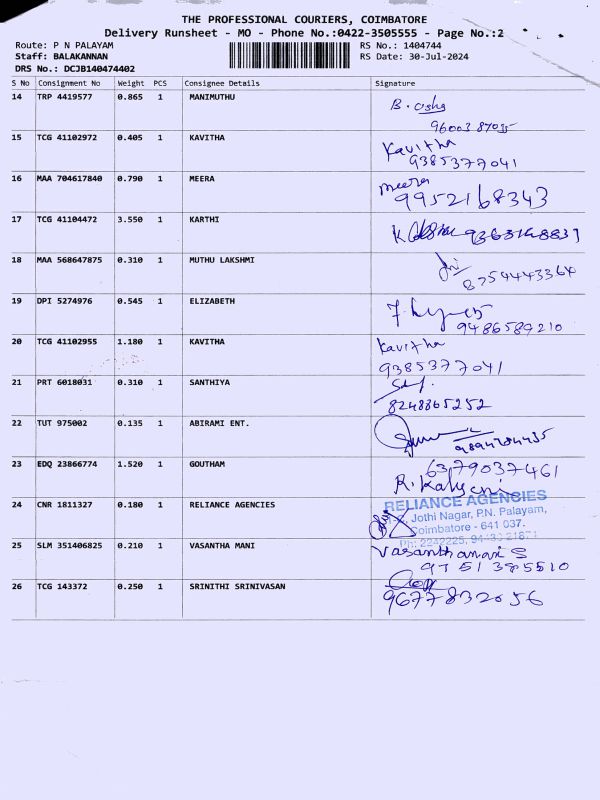 THE PROFESSIONAL COURIERS, COIMBATORE
Delivery Runsheet - MO - Phone No.:0422-3505555 - Page No.:2
Route: P N PALAYAM
RS No.: 1404744
Staff: BALAKANNAN
RS Date: 30-Jul-2024
DRS No.: DCJB140474402
S No Consignment No Weight PCS Consignee Details Signature
14 TRP 4419577 0.865 1 MANIMUTHU B. Usha
15 TCG 41102972 0.405 1 KAVITHA Kavitha
9385377041
16 MAA 704617840 0.790 1 MEERA meera
9952168343
17 TCG 41104472 3.550 1 KARTHI
18 MAA 568647875 0.310 1 MUTHU LAKSHMI
8754443364
19 DPI 5274976 0.545 1 ELIZABETH
9486589210
20 TCG 41102955 1.180 1 KAVITHA Kavitha
9385377041
21 PRT 6018031 0.310 1 SANTHIYA
8248865252
22 TUT 975002 0.135 1 ABIRAMI ENT.
23 EDQ 23866774 1.520 1 GOUTHAM 6379037461
R. Kalyani
24 CNR 1811327 0.180 1 RELIANCE AGENCIES RELIANCE AGENCIES
Jothi Nagar, P.N. Palayam,
Coimbatore - 641 037.
Ph: 2242225,
25 SLM 351406825 0.210 1 VASANTHA MANI Vasanthamani S
26 TCG 143372 0.250 1 SRINITHI SRINIVASAN
9677832056